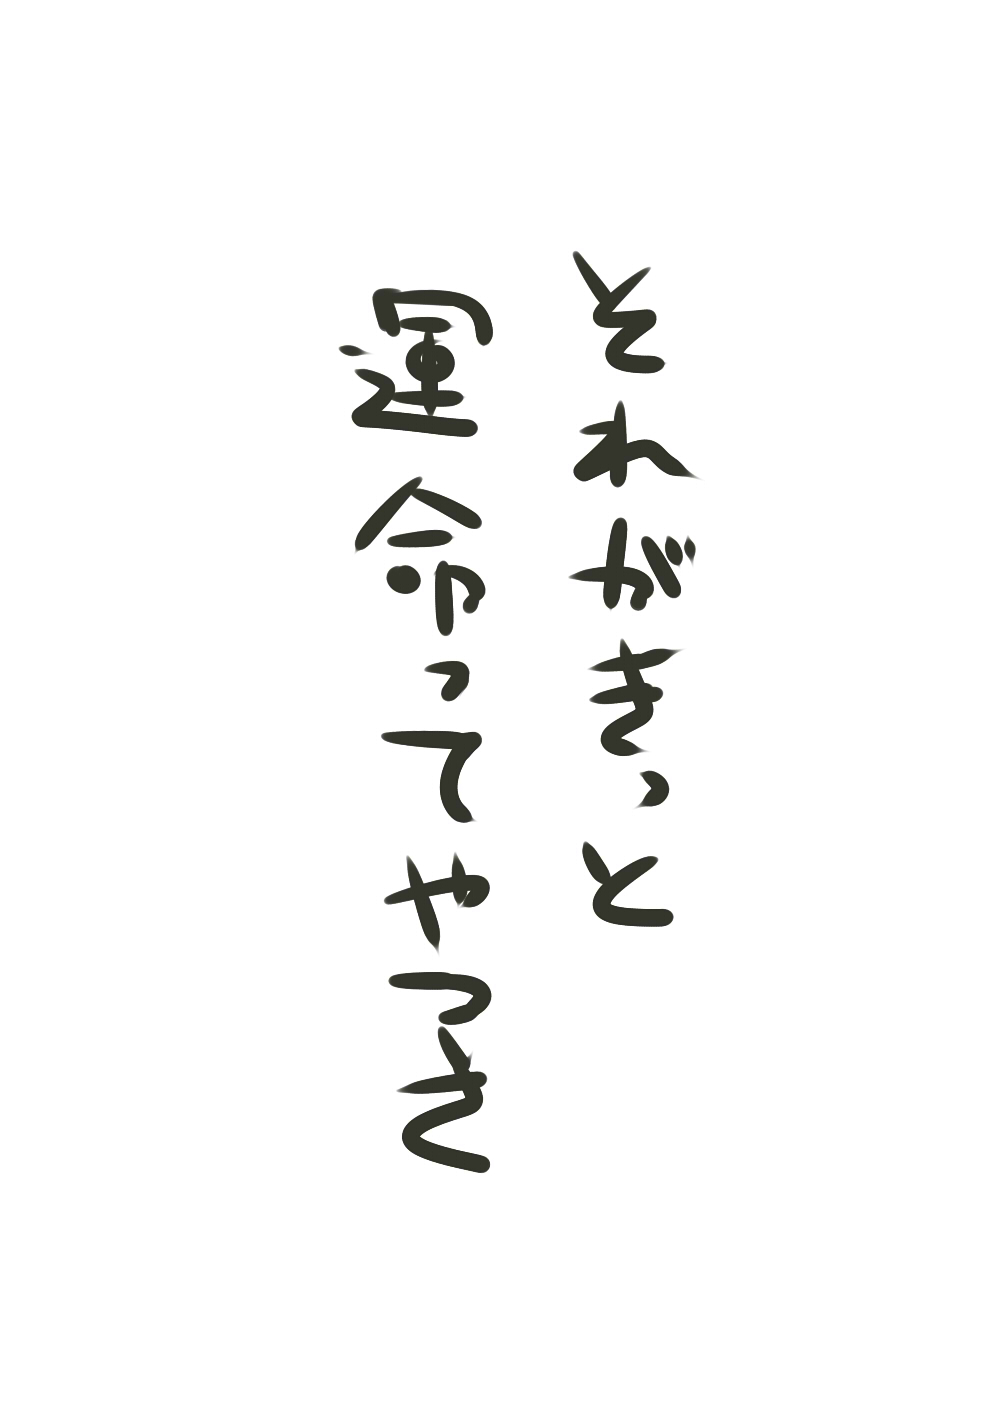 それがきっと
運命ってやつさ